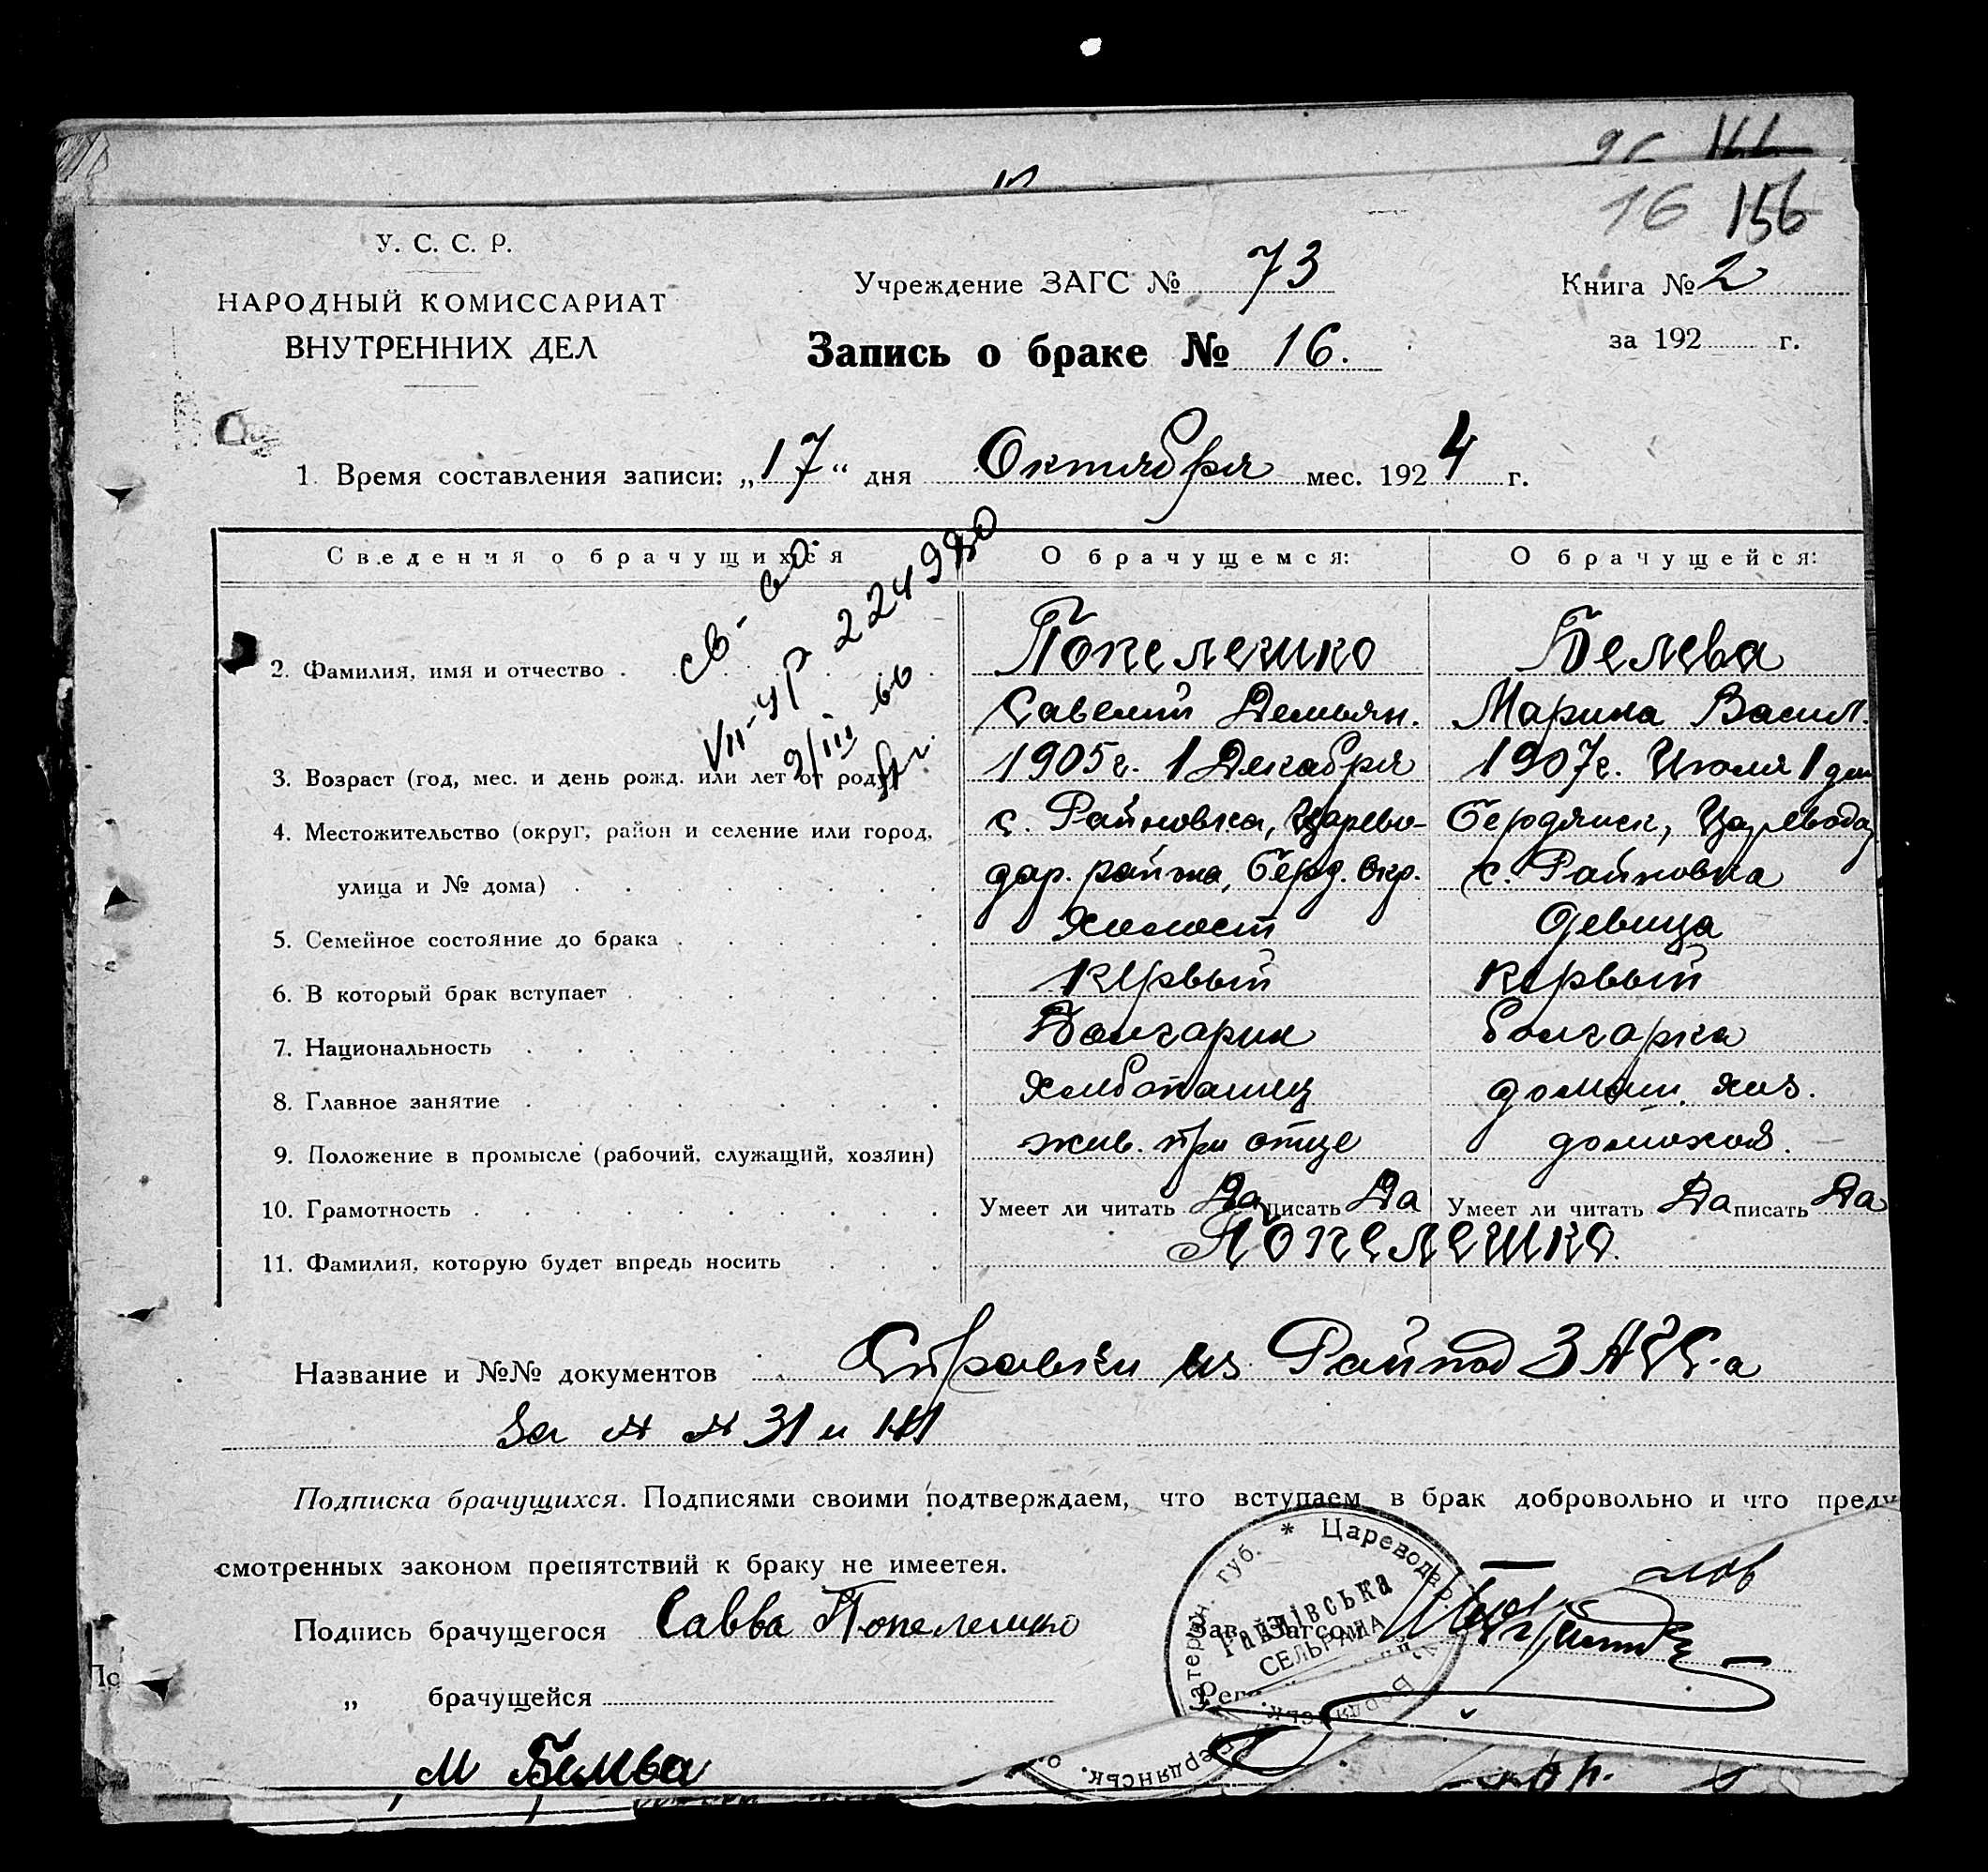 16 156
У. С. С. Р.
НАРОДНЫЙ КОМИССАРИАТ
ВНУТРЕННИХ ДЕЛ
Учреждение ЗАГС № 73
Книга № 2
Запись о браке № 16.
за 192 г.
1. Время составления записи: „17“ дня Октября мес. 1924 г.
Сведения о брачущихся О брачущемся: О брачущейся:
св-во
VII-УР 224980
9/III 66
2. Фамилия, имя и отчество Попелешко Белева
Савелий Демьян. Марина Васил.
3. Возраст (год, мес. и день рожд. или лет от роду) 1905г. 1 Декабря 1907г. Июля 1 дня
4. Местожительство (округ, район и селение или город, с. Райновка, Царево- Бердянск, Цареводар
улица и № дома) дар. района, Берд. Окр. с. Райновка
5. Семейное состояние до брака Холост девица
6. В который брак вступает первый первый
7. Национальность Болгарин болгарка
8. Главное занятие Хлебопашец домаш. хоз.
9. Положение в промысле (рабочий, служащий, хозяин) жив. при отце домохоз.
10. Грамотность Умеет ли читать Да писать Да Умеет ли читать Да писать Да
11. Фамилия, которую будет впредь носить Попелешко.
Название и №№ документов Справки из Райпод ЗАГС-а
За № № 31 и 141
Подписка брачущихся. Подписями своими подтверждаем, что вступаем в брак добровольно и что преду
смотренных законом препятствий к браку не имеется.
Подпись брачущегося Савва Попелешко
Зав. Загсом
„ брачущейся
М Белева
* Цареводар.
Райнівська
СЕЛЬРАДА
Бердянськ.